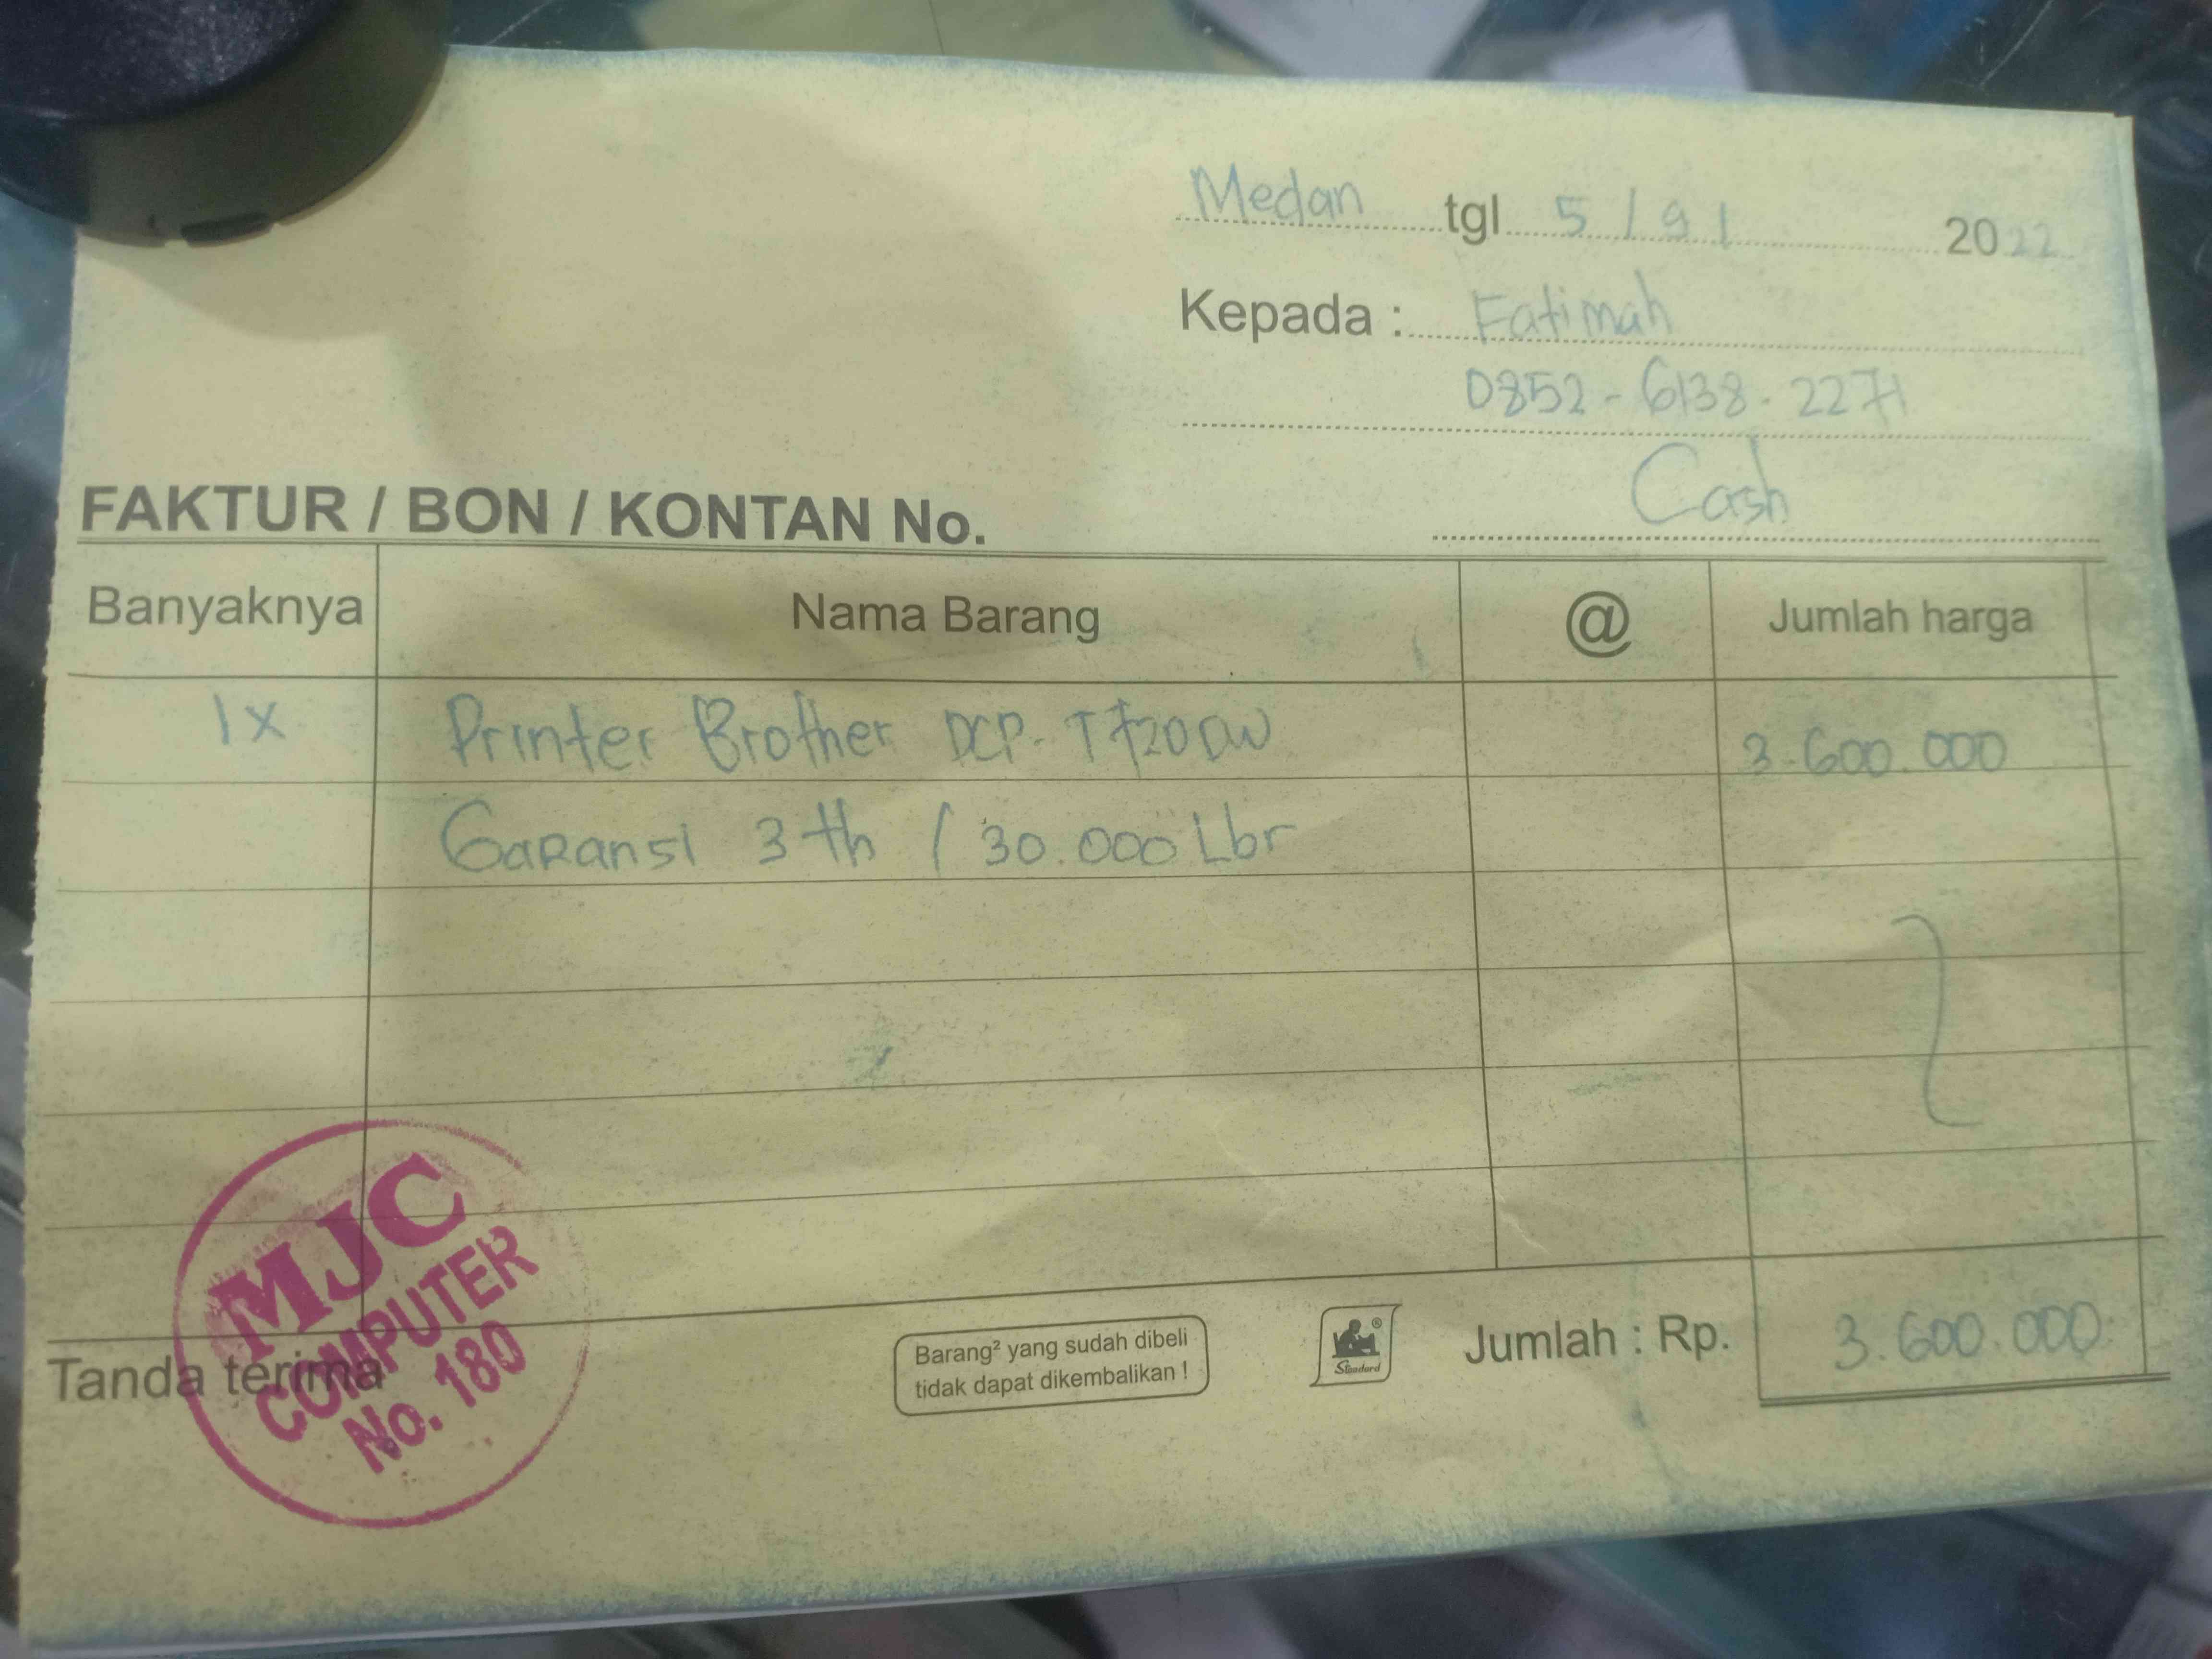 Medan tgl 5 / 9 / 2022
Kepada : Fatimah
0852 - 6138 - 2271
Cash
FAKTUR / BON / KONTAN No.
Banyaknya Nama Barang @ Jumlah harga
1 x Printer Brother DCP - T720DW 3.600.000
Garansi 3 th / 30.000 Lbr
MJC
COMPUTER
No. 180
Tanda terima
Barang² yang sudah dibeli
tidak dapat dikembalikan !
®
Standard
Jumlah : Rp. 3.600.000